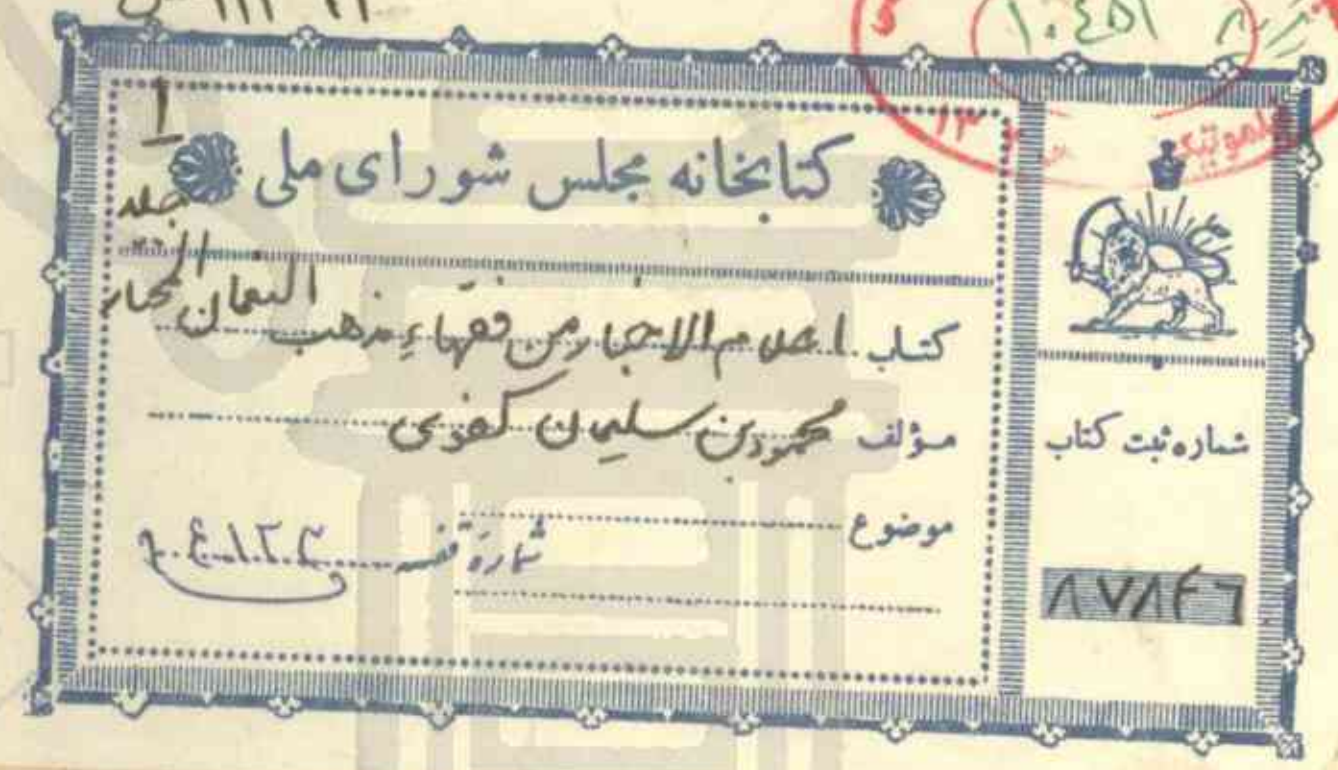 ۱۰۴۵۱
کتابخانه مجلس شورای ملی
جلد ۱
کتاب اعلام الاخیار من فقهاء مذهب النعمان المختار
مؤلف محمود بن سلیمان کفوی
موضوع
شماره قفسه
شماره ثبت کتاب
۸۷۸۴۶